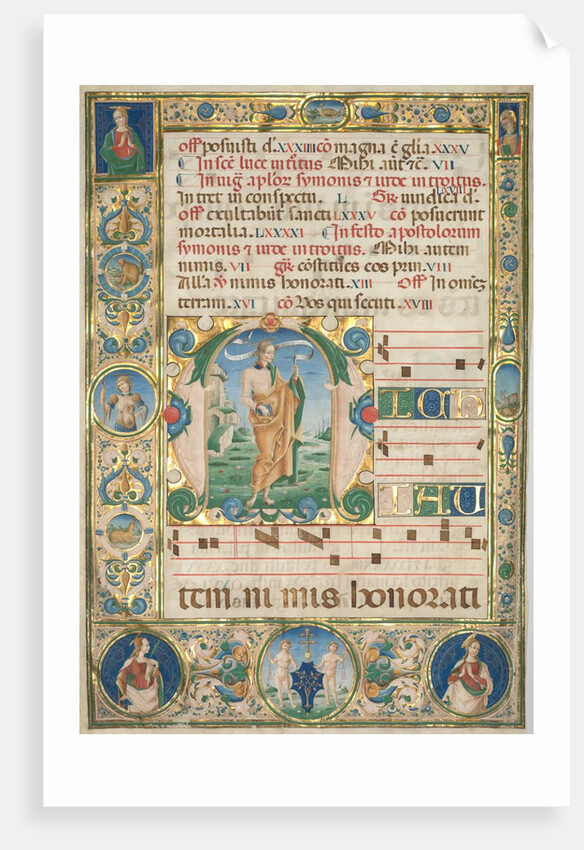 off posuisti d̃. XXXIIII cõ magna ẽ gl̃ia XXXV
In scẽ luce intitus Mihi aut̃ ẽc̃. VII
In uig̃ ap̃lor symonis & iude introitus.
Intret in conspectu. L Gr̃ uindica d̃. LXVIII
off exultabũt sancti LXXXV cõ posuerunt
mortalia. LXXXXI In festo apostolorum
symonis & iude introitus. Mihi autem
nimis. VII gr̃ cõstitues eos prin. VIII
Alla ṽ nimis honorati. XIII Off In omẽ
terram. XVI cõ Vos qui secuti. XVIII
M ICH
I AU
tem ni mis honorati